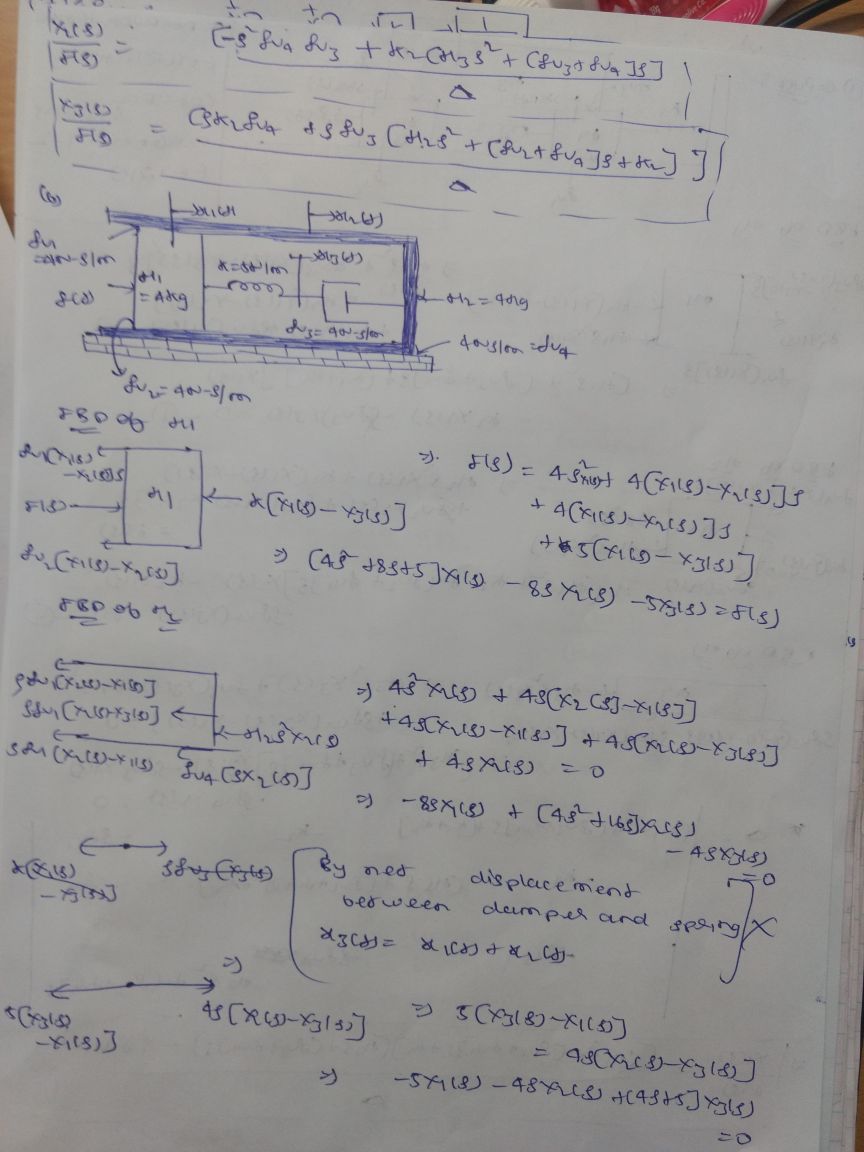 X1(s)/F(s) = [-s² fv4 fv3 + K2(M3s² + (fv3+fv4)s)] / Δ
X3(s)/F(s) = (sK2fv4 + s fv3 [M2s² + (fv2+fv4)s + K2]) / Δ
(b)
x1(t) x2(t)
fv1 = 4N-s/m
K=5N/m x3(t)
f(t) M1 = 4kg M2 = 4kg
fv3 = 4N-s/m
4N s/m = fv4
fv2 = 4N-s/m
FBD of M1
fv1(X1(s) - X2(s))s
⇒ F(s) = 4s²X1(s) + 4(X1(s)-X2(s)]s
F(s) M1 K(X1(s) - X3(s)] + 4(X1(s)-X2(s)]s
+ 5(X1(s) - X3(s)]
fv2[X1(s)-X2(s)]
⇒ (4s² + 8s + 5]X1(s) - 8s X2(s) - 5X3(s) = F(s)
FBD of M2
sfv1(X2(s)-X1(s)]
⇒ 4s²X2(s) + 4s(X2(s]-X1(s)]
sfv1[X2(s)+X3(s)] M2s²X2(s) +4s(X2(s)-X1(s)] + 4s(X2(s)-X3(s)]
sfv1(X2(s)-X1(s) fv4[sX2(s)] + 4sX2(s) = 0
⇒ -8sX1(s) + (4s²+16s)X2(s)
- 4sX3(s) = 0
K(X1(s) - X3(s)] sfv3(X3(s))
By net displacement
between damper and spring X
x3(t) = x1(t) + x2(t)
⇒
5(X3(s) - X1(s)] 4s[X2(s)-X3(s)] ⇒ 5(X3(s)-X1(s)]
= 4s(X2(s)-X3(s)]
⇒ -5X1(s) - 4sX2(s) + (4s+5]X3(s)
= 0